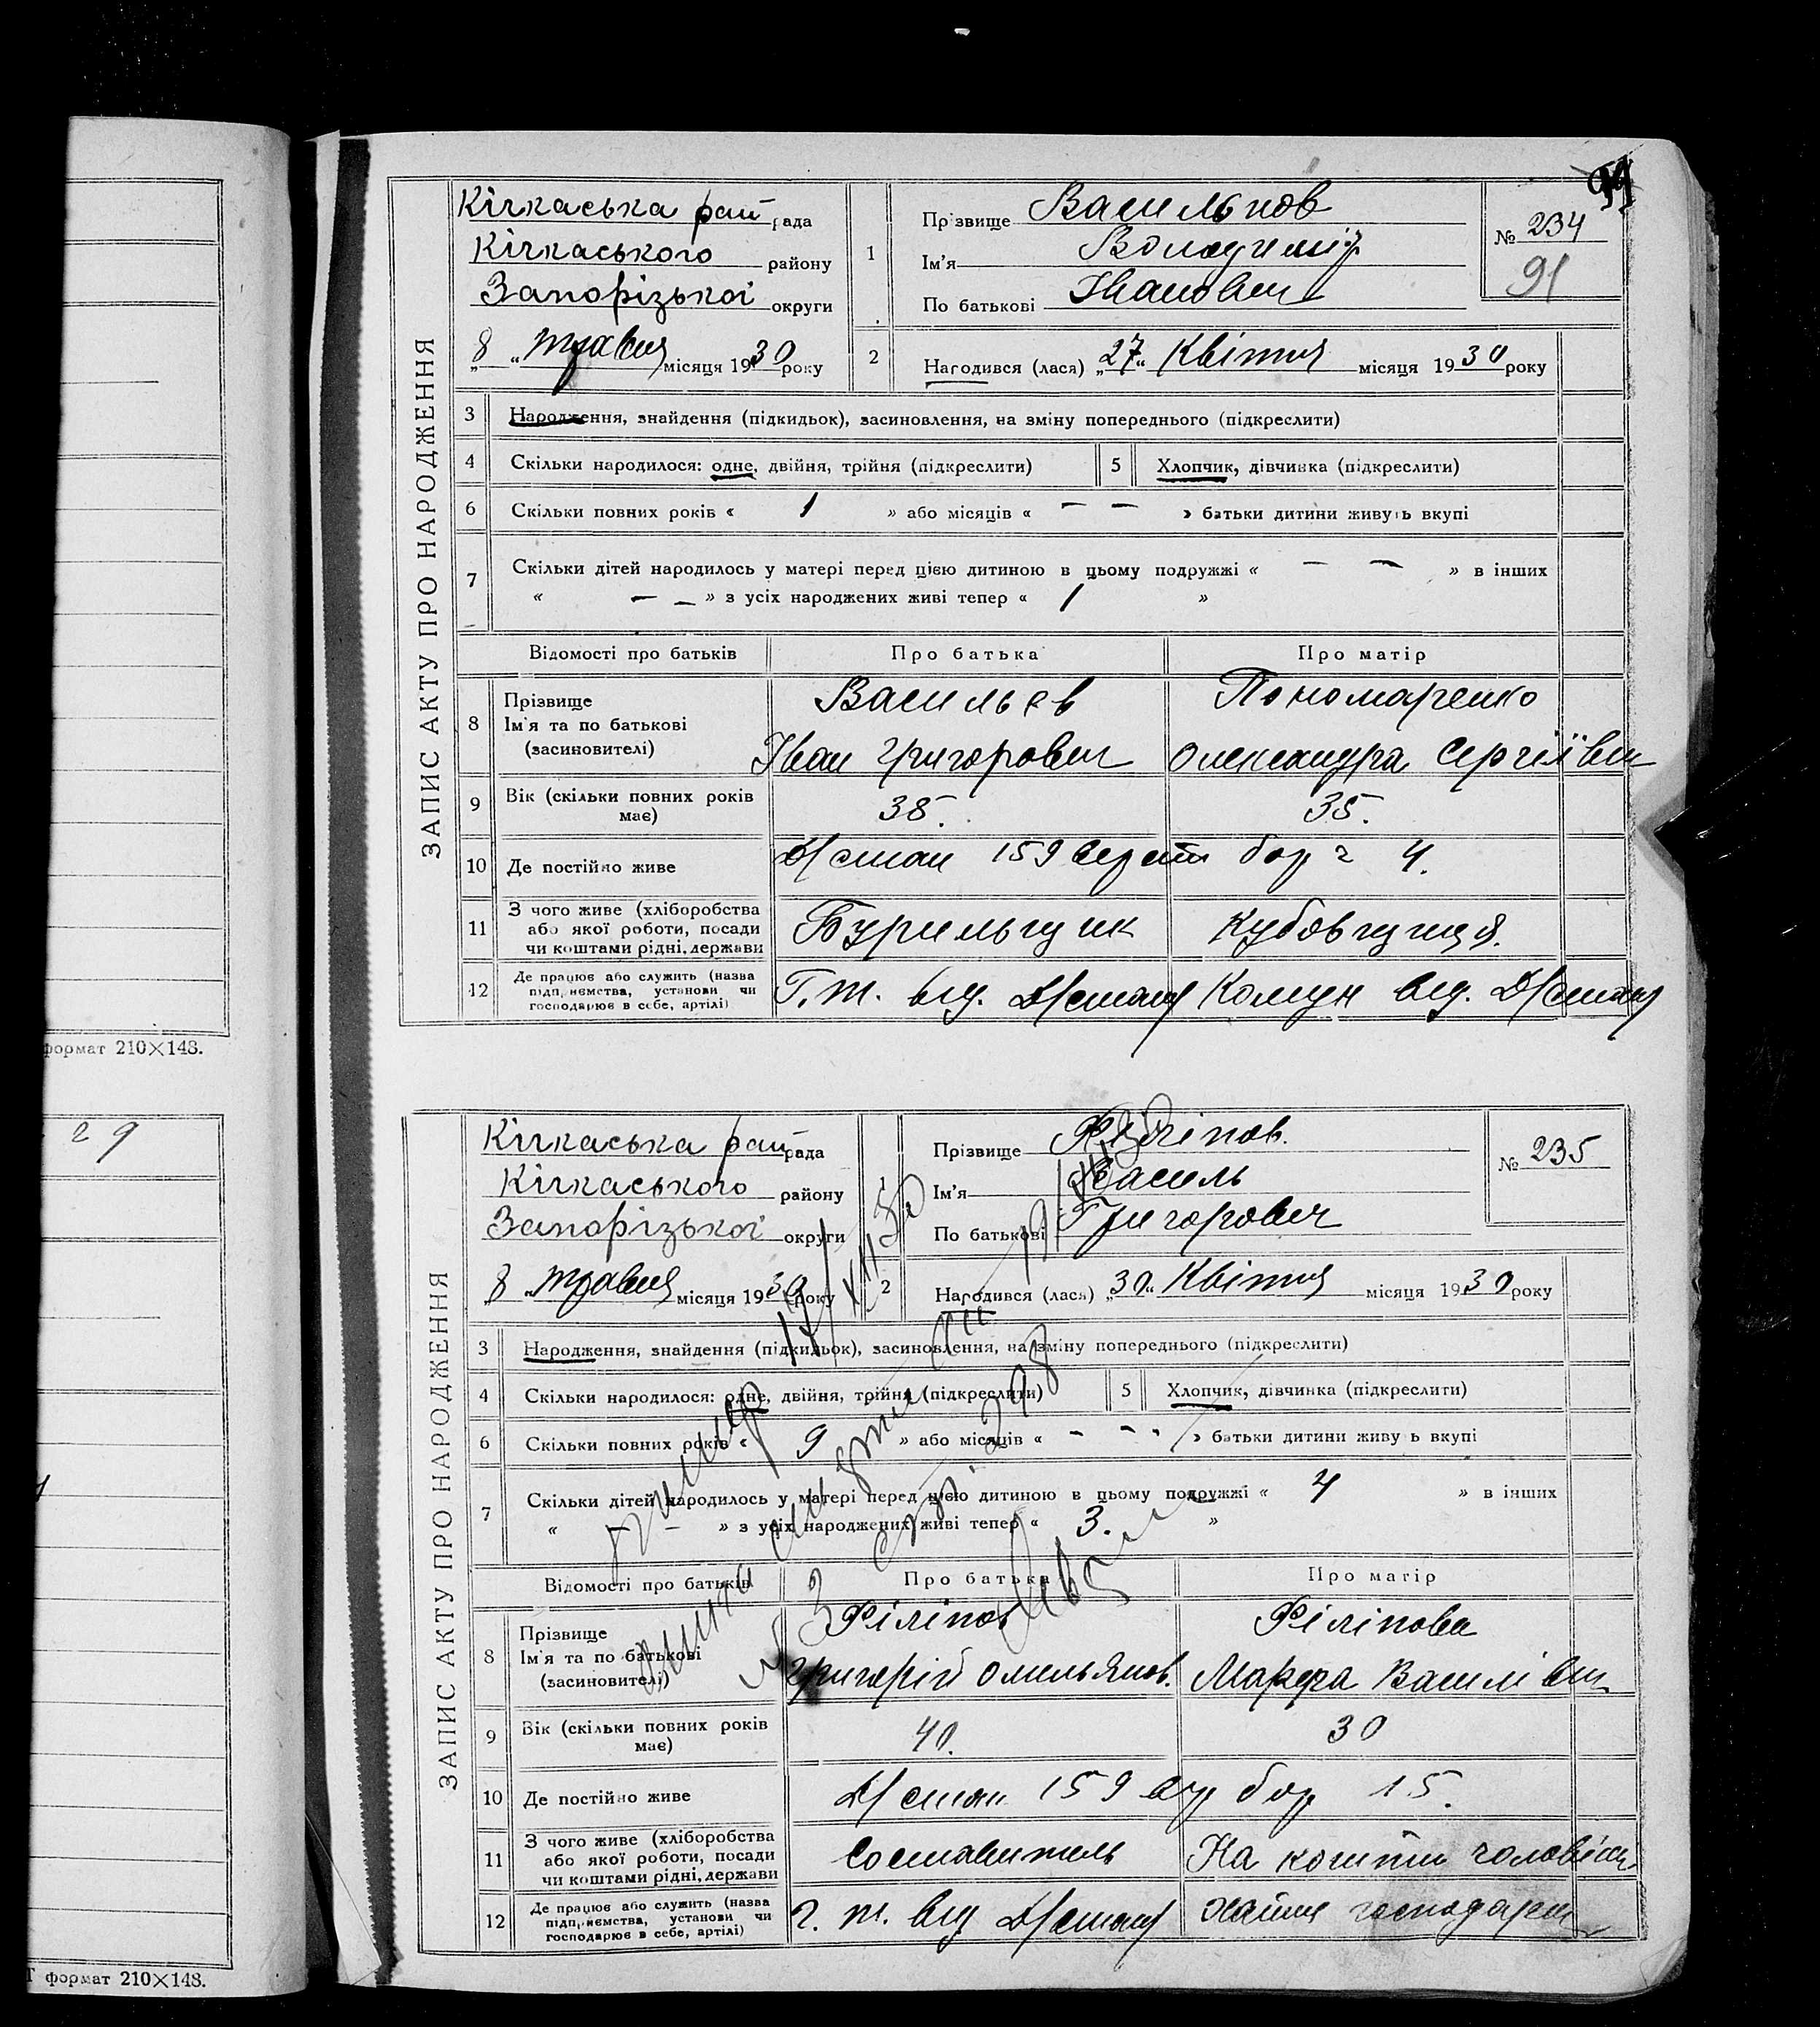 ЗАПИС АКТУ ПРО НАРОДЖЕННЯ
Кічкаська рай рада
Кічкаського району
Запорізької округи
„8“ травня місяця 1930 року
1
Прізвище Васильков
Ім'я Володимір
По батькові Іванович
№ 234
91
2
Народився (лася) „27“ Квітня місяця 1930 року
3 Народження, знайдення (підкидьок), засиновлення, на зміну попереднього (підкреслити)
4 Скільки народилося: одне, двійня, трійня (підкреслити)
5 Хлопчик, дівчинка (підкреслити)
6 Скільки повних років « 1 » або місяців « — — » батьки дитини живуть вкупі
7 Скільки дітей народилось у матері перед цією дитиною в цьому подружжі « — — » в інших
« — — » з усіх народжених живі тепер « 1 »
Відомості про батьків Про батька Про матір
8 Прізвище
Ім'я та по батькові
(засиновителі)
Васильєв
Іван Григорович
Пономаренко
Олександра Сергіївн
9 Вік (скільки повних років має)
38.
35.
10 Де постійно живе
Д/стан 159 бор 4.
11 З чого живе (хліборобства
або якої роботи, посади
чи коштами рідні, держави
Бурильщик
Кубовщиця.
12 Де працює або служить (назва
підприємства, установи чи
господарює в себе, артілі)
Г. т. від. Д/стану
Комун від. Д/стану
формат 210×148.
29
ЗАПИС АКТУ ПРО НАРОДЖЕННЯ
Кічкаська рай рада
Кічкаського району
Запорізької округи
„8“ травня місяця 1930 року
1
Прізвище Філіпов.
Ім'я Василь
По батькові Григорович
№ 235
2
Народився (лася) „30“ Квітня місяця 1930 року
3 Народження, знайдення (підкидьок), засиновлення, на зміну попереднього (підкреслити)
4 Скільки народилося: одне, двійня, трійня (підкреслити)
5 Хлопчик, дівчинка (підкреслити)
6 Скільки повних років « 9 » або місяців « - - » батьки дитини живуть вкупі
7 Скільки дітей народилось у матері перед цією дитиною в цьому подружжі « 4 » в інших
« — — » з усіх народжених живі тепер « 3. »
Відомості про батьків Про батька Про матір
8 Прізвище
Ім'я та по батькові
(засиновителі)
Філіпов
Григорій Омельянов.
Філіпова
Марфа Василівн
9 Вік (скільки повних років має)
40.
30
10 Де постійно живе
Д/стан 159 бор 15.
11 З чого живе (хліборобства
або якої роботи, посади
чи коштами рідні, держави
Составитель
На кошти чоловіка
12 Де працює або служить (назва
підприємства, установи чи
господарює в себе, артілі)
Г. т. від Д/стану
Хатня господарка
формат 210×148.